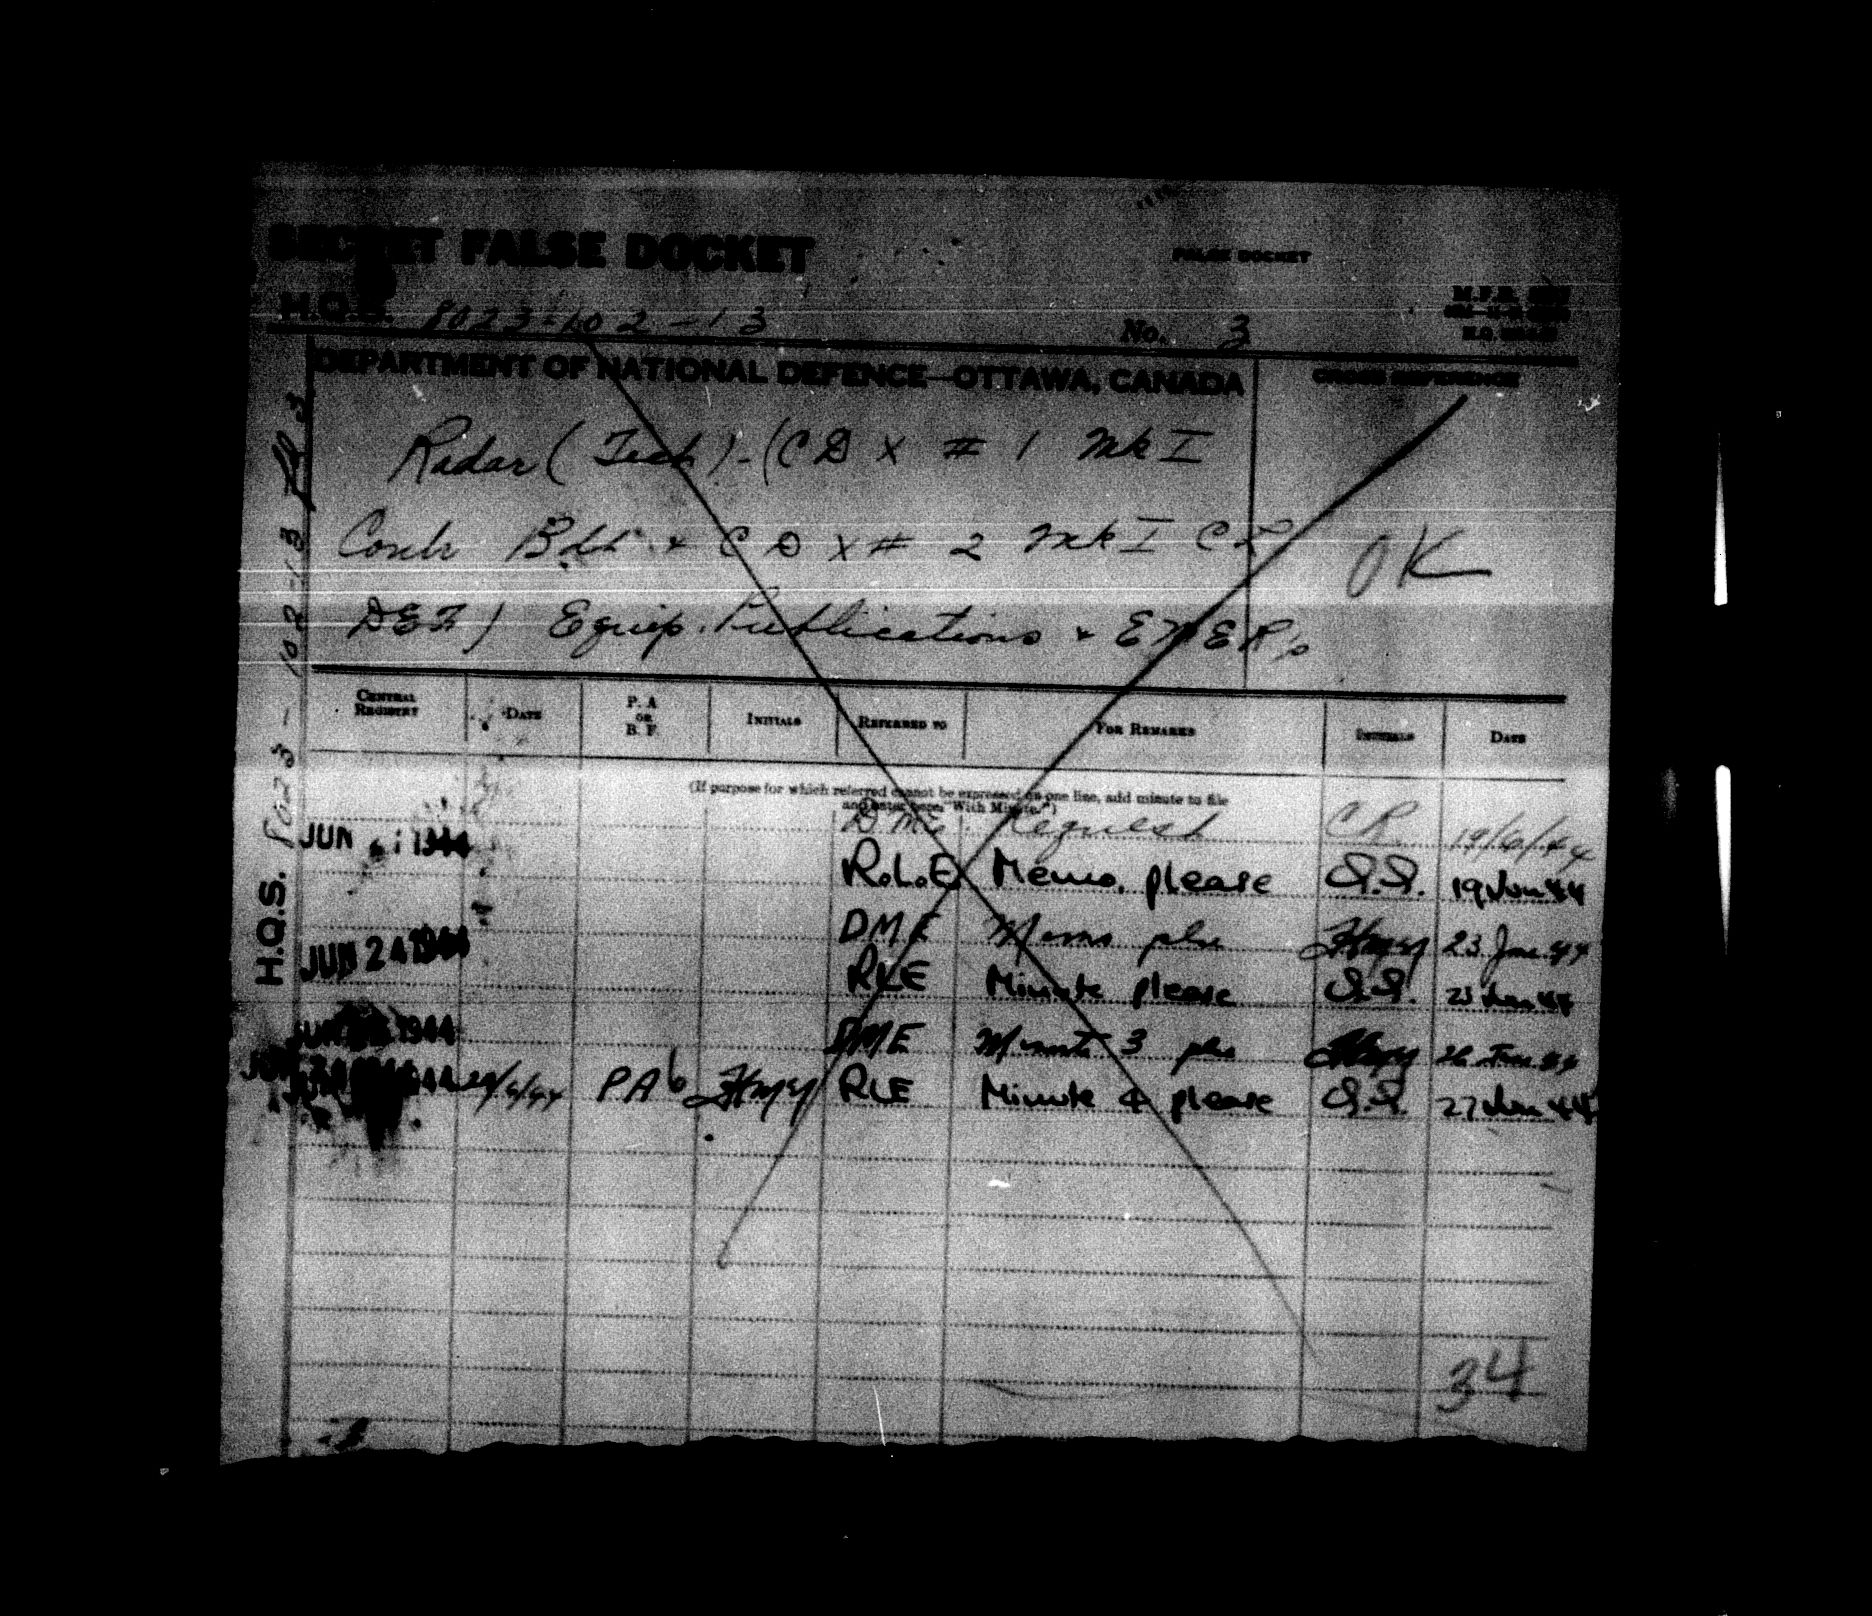 SECRET FALSE DOCKET
FALSE DOCKET
H.Q.S. 8023-102-13
No. 3
DEPARTMENT OF NATIONAL DEFENCE—OTTAWA, CANADA
CROSS REFERENCE
Radar (Tech) - (CD X # 1 Mk I
Contr Bdd & CD X # 2 Mk I
OK
Equip. Publications &
H.Q.S. 8023-102-13
CENTRAL REGISTRY
DATE
P. A OR B. F.
INITIALS
REFERRED TO
FOR REMARKS
INITIALS
DATE
(If purpose for which referred cannot be expressed on one line, add minute to file
and enter here "With Minute.")
DME Request CR 19/6/44
JUN 1944 R.L.E. Memo. please S.S. 19 Jun 44
DME Memo pls 23 Jun 44
JUN 24 1944 RLE Minute please S.S. Jun 44
1944 DME Minute 3 pls 26 Jun 44
PA 6 RLE Minute 4 please S.S. 27 Jun 44
34